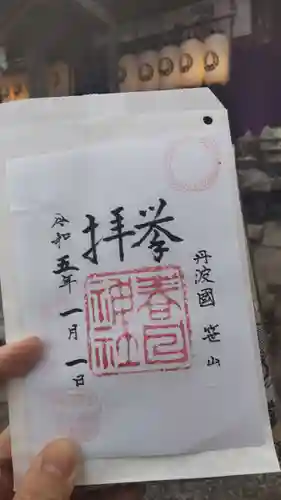 丹波國 笹山
奉拝
春日
神社
令和五年一月一日